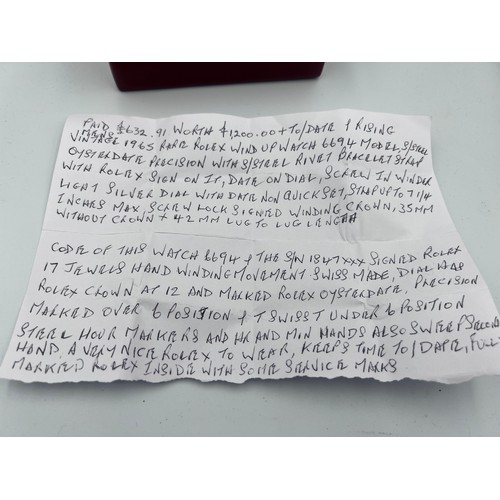 PAID £632.91 WORTH £1,200.00 + TO/DATE & RISING
MENS
VINTAGE 1965 RARE ROLEX WIND UP WATCH 6694 MODEL, S/STEEL
OYSTERDATE PRECISION WITH S/STEEL RIVET BRACELET STRAP
WITH ROLEX SIGN ON IT, DATE ON DIAL, SCREW IN WINDER
LIGHT SILVER DIAL WITH DATE NON QUICK SET, STRAP UP TO 7 1/4
INCHES MAX, SCREW LOCK SIGNED WINDING CROWN, 35MM
WITHOUT CROWN + 42MM LUG TO LUG LENGTH
CODE OF THIS WATCH 6694 & THE S/N 1847XXX SIGNED ROLEX
17 JEWELS HAND WINDING MOVEMENT SWISS MADE, DIAL HAS
ROLEX CROWN AT 12 AND MARKED ROLEX OYSTERDATE, PRECISION
MARKED OVER 6 POSISION & T SWISS T UNDER 6 POSITION
STEEL HOUR MARKERS AND HR AND MIN HANDS ALSO SWEEP SECOND
HAND, A VERY NICE ROLEX TO WEAR, KEEPS TIME TO/DATE, FULLY
MARKED ROLEX INSIDE WITH SOME SERVICE MARKS